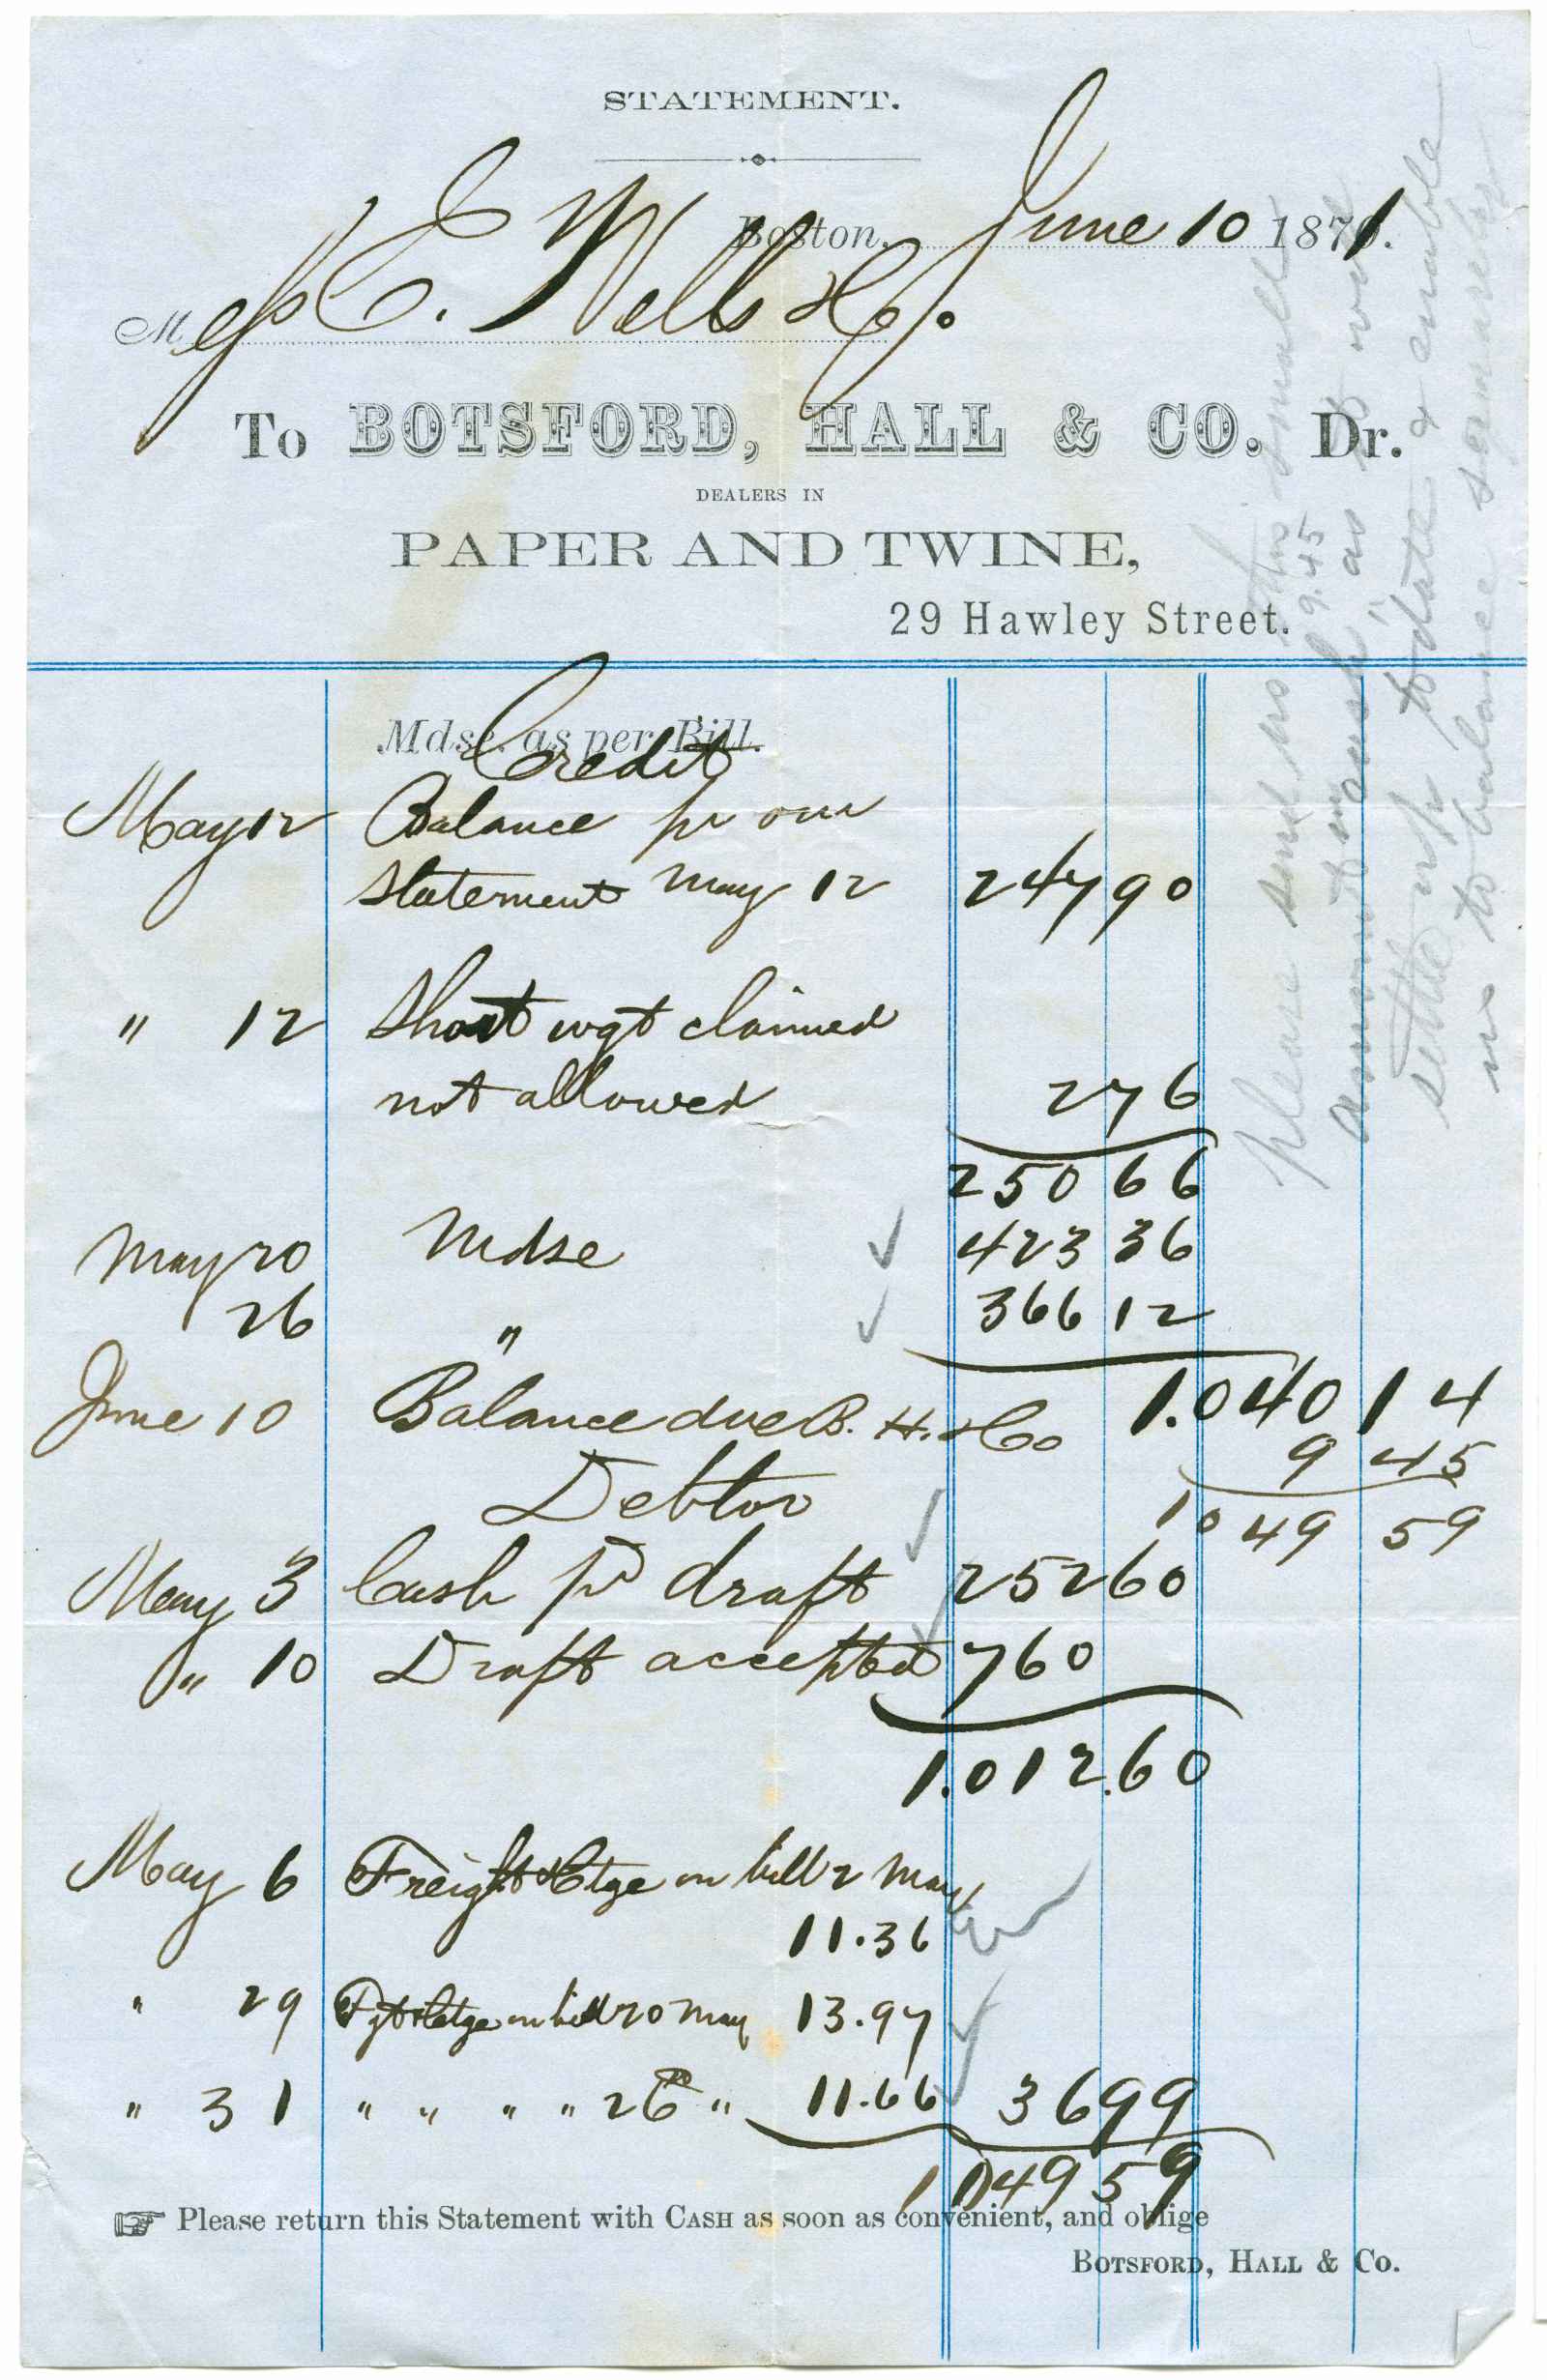 STATEMENT.
Boston, June 10 1871.
Mess C. Wells & Co.
To BOTSFORD, HALL & CO. Dr.
DEALERS IN
PAPER AND TWINE,
29 Hawley Street.
Mdse. as per Bill.
Credit
May 12 Balance pr our
statement May 12 247 90
" 12 Short wgt claimed
not allowed 2 76
250 66
May 20 Mdse 423 36
26 " 366 12
June 10 Balance due B. H. & Co 1.040 14
9 45
Debtor 1049 59
May 3 Cash pr draft 252 60
" 10 Draft accepted 760
1.012.60
May 6 Freight & Ctge on bill 2 May
11.36
" 29 Fgt & Ctge on bill 20 May 13.97
" 31 " " " " 26 " 11.66 36 99
1049 59
Please return this Statement with CASH as soon as convenient, and oblige
BOTSFORD, HALL & CO.
please send us this small
amount 9.45 in cash, as we
settle up to date & enable
us to balance